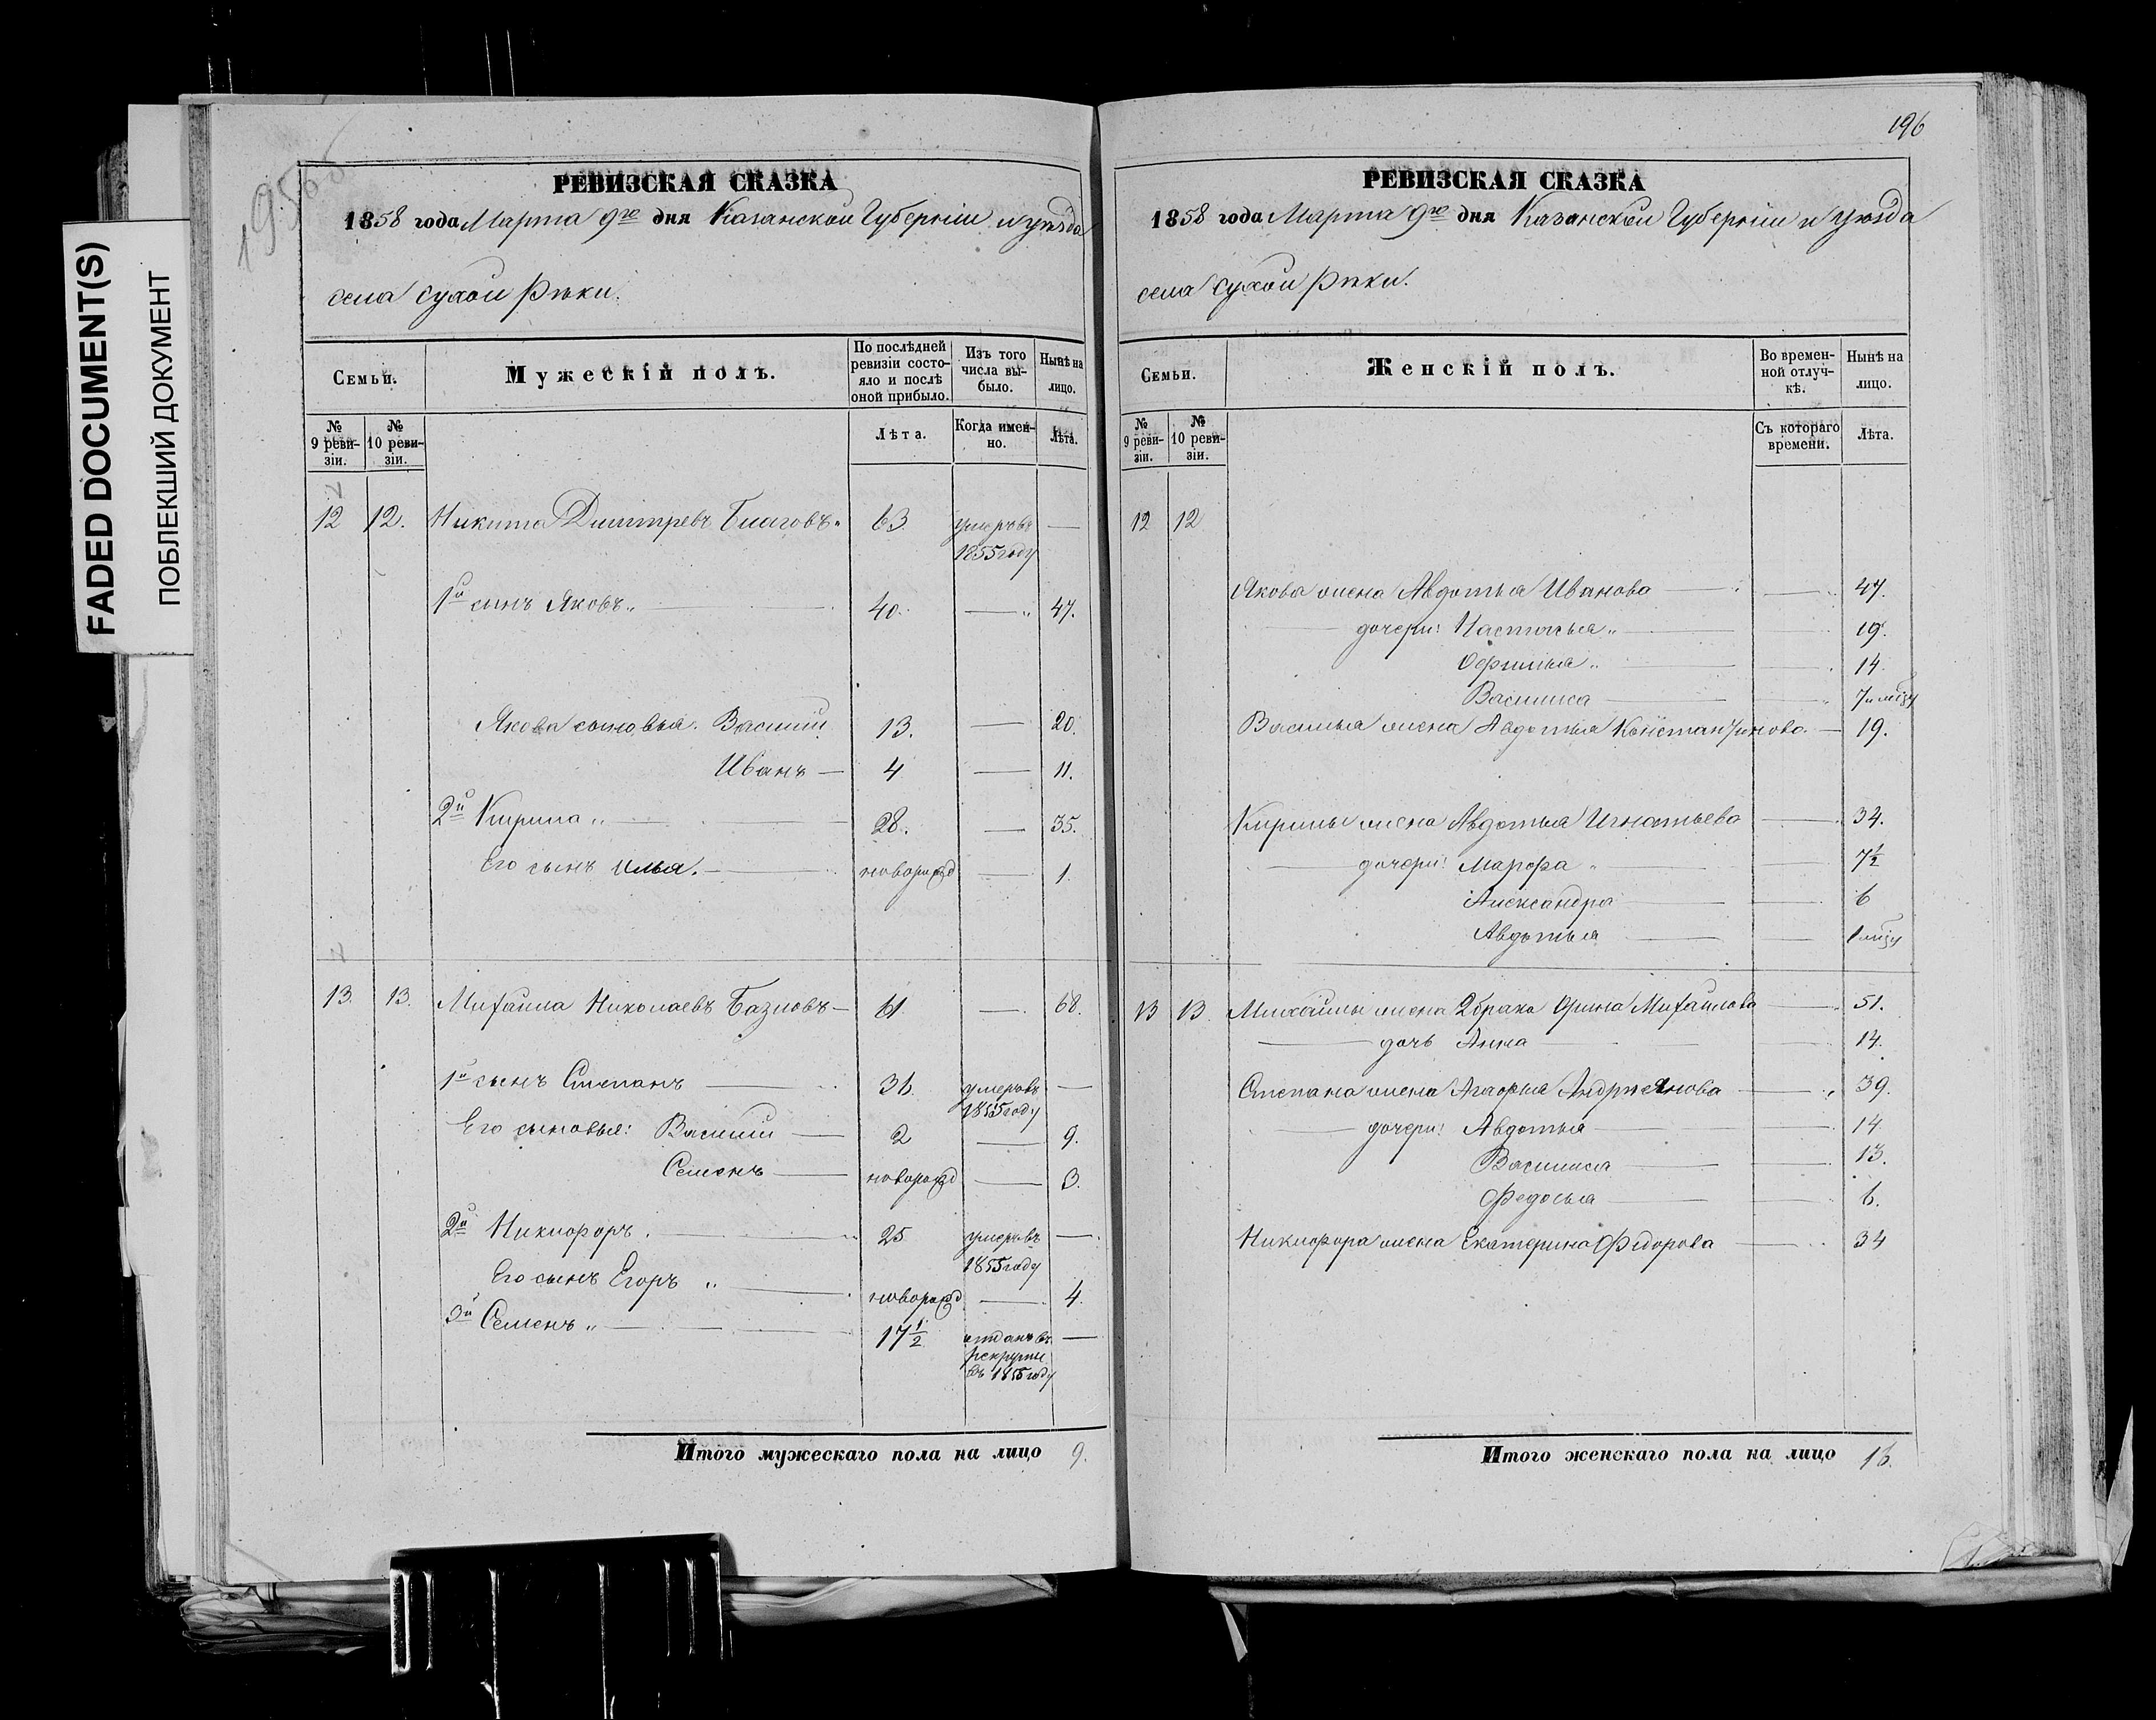 FADED DOCUMENT(S)
ПОБЛЕКШИЙ ДОКУМЕНТ
195об
РЕВИЗСКАЯ СКАЗКА
1858 года Марта 9го дня Казанской Губерніи и уѣзда
села сухой рѣки.
Семьи.
Мужескій полъ.
По послѣдней ревизіи состояло и послѣ оной прибыло.
Изъ того числа выбыло.
Нынѣ на лицо.
№ 9 ревизіи.
№ 10 ревизіи.
Лѣта.
Когда именно.
Лѣта.
12 12. Никита Дмитревъ 63 умеръ въ 1855 году —
1й сынъ Яковъ 40. — 47.
Якова сыновья. Василий 13. — 20.
Иванъ — 4 — 11.
2й Кирила 28. — 35.
Его сынъ илья. новорожд — 1.
13. 13. Михаила Николаевъ — 61. — 68.
1й сынъ Степанъ 36. умеръ въ 1855 году —
Его сыновья: Василий 2 — 9.
Семенъ новорожд — 3.
2й Никифоръ. 25 умеръ въ 1855 году —
Его сынъ Егоръ новорожд — 4.
3й Семенъ 17 1/2 отданъ въ рекруты въ 1855 году —
Итого мужескаго пола на лицо 9.
196
РЕВИЗСКАЯ СКАЗКА
1858 года Марта 9го дня Казанской Губерніи и уѣзда
села сухой рѣки.
Семьи.
Женскій полъ.
Во временной отлучкѣ.
Нынѣ на лицо.
№ 9 ревизіи.
№ 10 ревизіи.
Съ котораго времени.
Лѣта.
12 12
Якова жена Авдотья Иванова — 47.
дочери: Настасья — 19.
Офимья — 14.
Василиса — 7 и мѣсяц
Василья жена Авдотья Константинова — 19.
Кирилы жена Авдотья Игнатьева — 34.
дочери: Марфа — 7 1/2
Александра — 6
Авдотья —
13 13. Михайлы жена 2 брака Орина Михайлова — 51.
дочь Анна — 14.
Степана жена Агафья Андриянова — 39.
дочери: Авдотья — 14
Василиса — 13.
Федосья — 6.
Никифора жена Екатерина Федорова — 34
Итого женскаго пола на лицо 16.